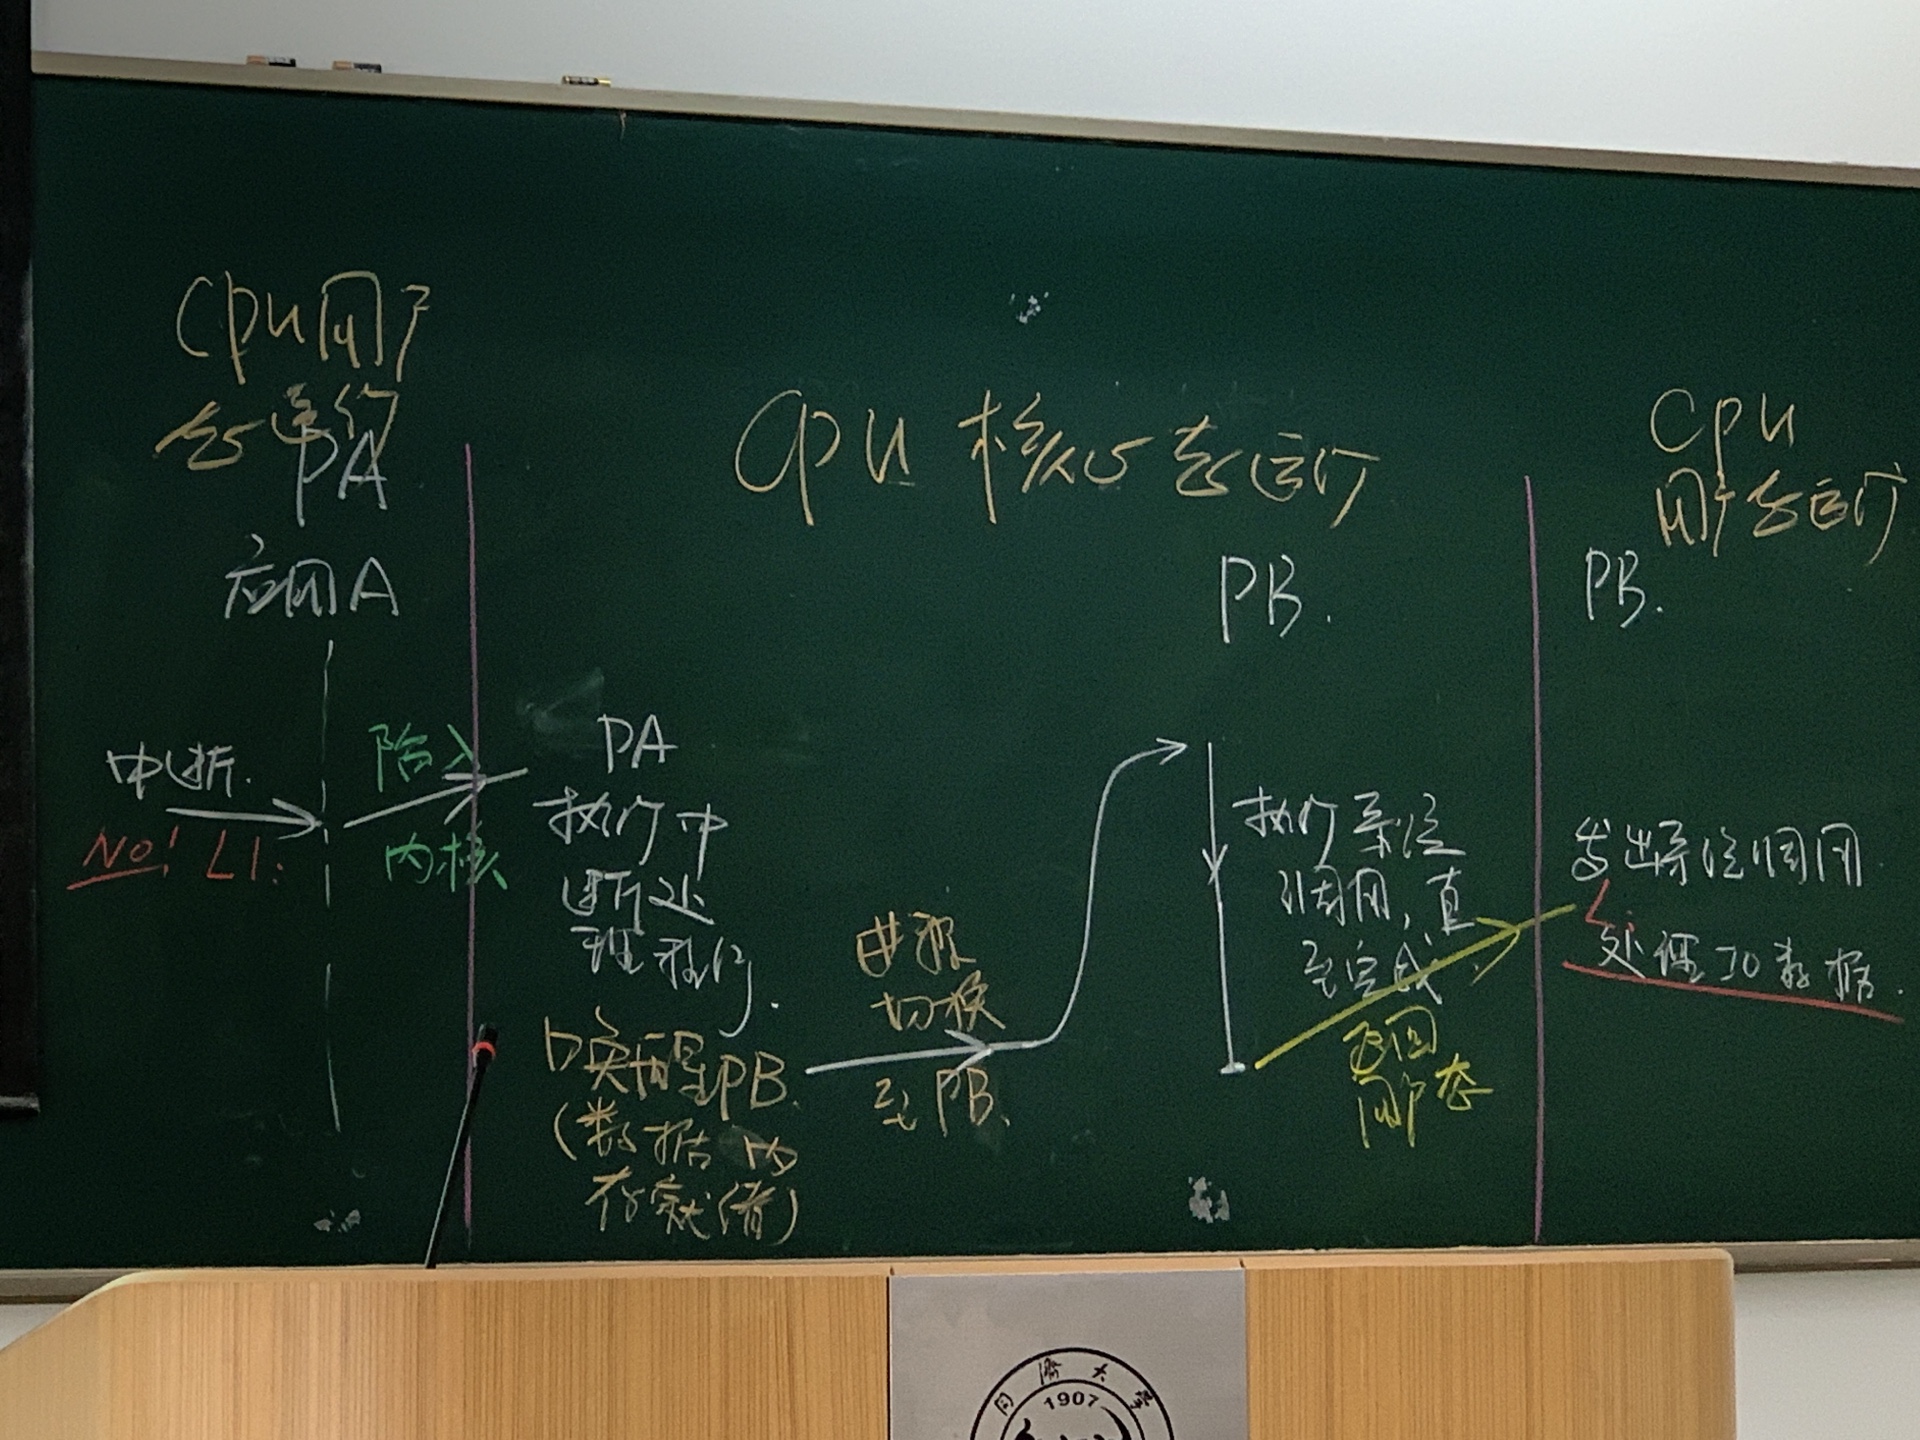 CPU用户
态运行
PA
应用A
中断.
No! L1:
陷入
内核
CPU 核心态运行
PA
执行中
断处
理程序.
唤醒PB.
(数据内
存就绪)
进程
切换
至PB.
PB.
执行系统
调用,直
至完成
返回
用户态
CPU
用户态运行
PB.
发出系统调用
处理IO数据.
同濟大學
1907